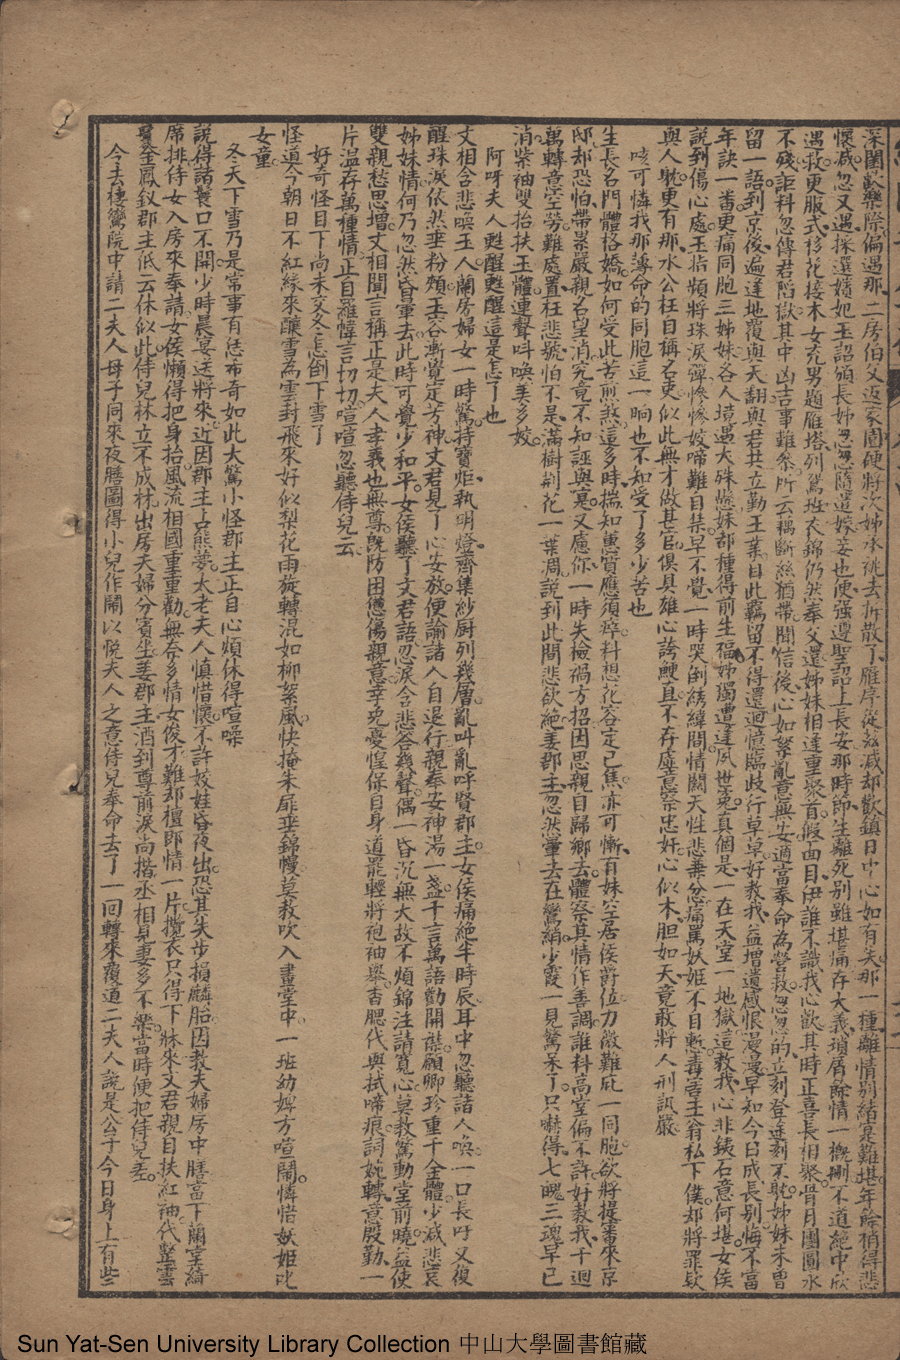 深閨歡樂際偏遇那二房伯父返家園硬將次姊來挑去拆散了雁序從茲減却歡鎮日中心如有失那一種離情別緒寔難堪年餘稍得悲
懷减忽又遇採選嬌妃玉詔頒長姊忽忽隨選嫁妾也便强遵聖詔上長安那時節生離死别雖堪痛存大義瑣屑餘情一概刪不道絕中欣
遇救更服式移花接木女充男題雁塔列鵉班衣錦仍然奉父還姊妹相逢重聚首假面目伊誰不識我心歡其時正喜長相聚骨月團圓永
不殘詎料忽傳君陷獄其中凶吉事難叅所云藕斷絲猶帶聞信後心如絮亂意無安適當奉命為營救忽忽的立刻登途刻不躭姊妹未曾
留一語到京後遍逢地覆與天翻與君共立勤王業自此羈留不得還迴憶臨歧行草草好教我益增遺感恨漫漫早知今日成長别悔不當
年訣一番更痛同胞三姊妹各人境遇大殊懸妹都種得前生福姊獨遭逢夙世寃真個是一在天堂一地獄這教我心非鉄石意何堪女侯
說到傷心處玉指頻將珠淚彈慘慘姣啼難自禁早不覺一時哭倒綉緯間情關天性悲兼忿痛罵妖姬不目慙毒害主翁私下僕却將罪欵
與人躭更有那水公枉自稱名吏似此無才做甚官俱具雄心誇鯁直不存塵意察忠奸心似木胆如天竟敢將人刑訊嚴
咳可憐我那薄命的同胞這一晌也不知受了多少苦也
生長名門體格嬌如何受此苦煎熬這多時揣知蕙質應須瘁料想花容定已焦亦可慚有妹空居侯爵位力微難庇一同胞欲將提審來京
邸却恐怕帶累嚴親名望消究竟不知誣與寔又慮你一時失檢禍方招因思親自歸鄉去體察其情作善調誰料高堂偏不許好教我千迴
萬轉意空勞難處置枉悲號怕不是滿樹荆花一葉凋說到此間悲欲絕姜郡主忽然暈去在鸞綃少霞一見驚呆了只嚇得七魄三魂早已
消紫袖雙抬扶玉體連聲呌喚美多姣
阿呀夫人甦醒甦醒這是怎了也
文相含悲喚玉人蘭房婦女一時驚持寶炬執明燈齊集紗厨列幾層亂叫亂呼賢郡主女侯痛絕半時辰耳中忽聽諸人喚一口長吁又復
醒珠淚依然垂粉頰玉容漸覺定芳神丈君見了心安放便諭諸人自退行親奉安神湯一盞千言萬語勸開襟願卿珍重千金體少減悲哀
姊妹情何乃忽然昏暈去此時可覺少和平女侯聽了文君語忍淚含悲答幾聲偶一昏沉無大故不煩錦注請寬心莫教驚動堂前曉益使
雙親愁思增丈相聞言稱正是夫人孝義也無尊旣防困憊傷親意幸免憂惶保自身道罷輕將袍袖舉香腮代與拭啼痕詞婉轉意殷勤一
片溫存萬種情正自羅幃言切切喧喧忽聽侍兒云
好奇怪目下尚未交冬怎倒下雪了
怪道今朝日不紅緣來釀雪為雲封飛來好似梨花雨旋轉混如柳絮風快掩朱扉垂錦幔莫教吹入畫堂中一班幼婢方喧鬧憐惜妖姬叱
女童
冬天下雪乃是常事有恁布奇如此大驚小怪郡主正自心煩休得喧噪
說得諸鬟口不開少時晨宴送將來近因郡主占熊夢太老夫人慎惜懷不許姣娃昏夜出恐其失步損麟胎因教夫婦房中膳畜下蘭堂綺
席排侍女入房來奉請女侯懶得把身抬風流相國重重勸無奈多情女俊才難却檀郎情一片攬衣只得下牀來文君親自扶紅袖代整雲
鬟金鳳釵郡主低云休似此侍兒林立不成材出房夫婦分賓坐姜郡主酒到尊前淚尚揩丞相見妻多不樂當時便把侍兒差
今去棲鸞院中請二夫人母子同來夜膳圖得小兒作鬧以悅夫人之意侍兒奉命去了一回轉來覆道二夫人說是公子今日身上有些
Sun Yat-Sen University Library Collection 中山大學圖書館藏